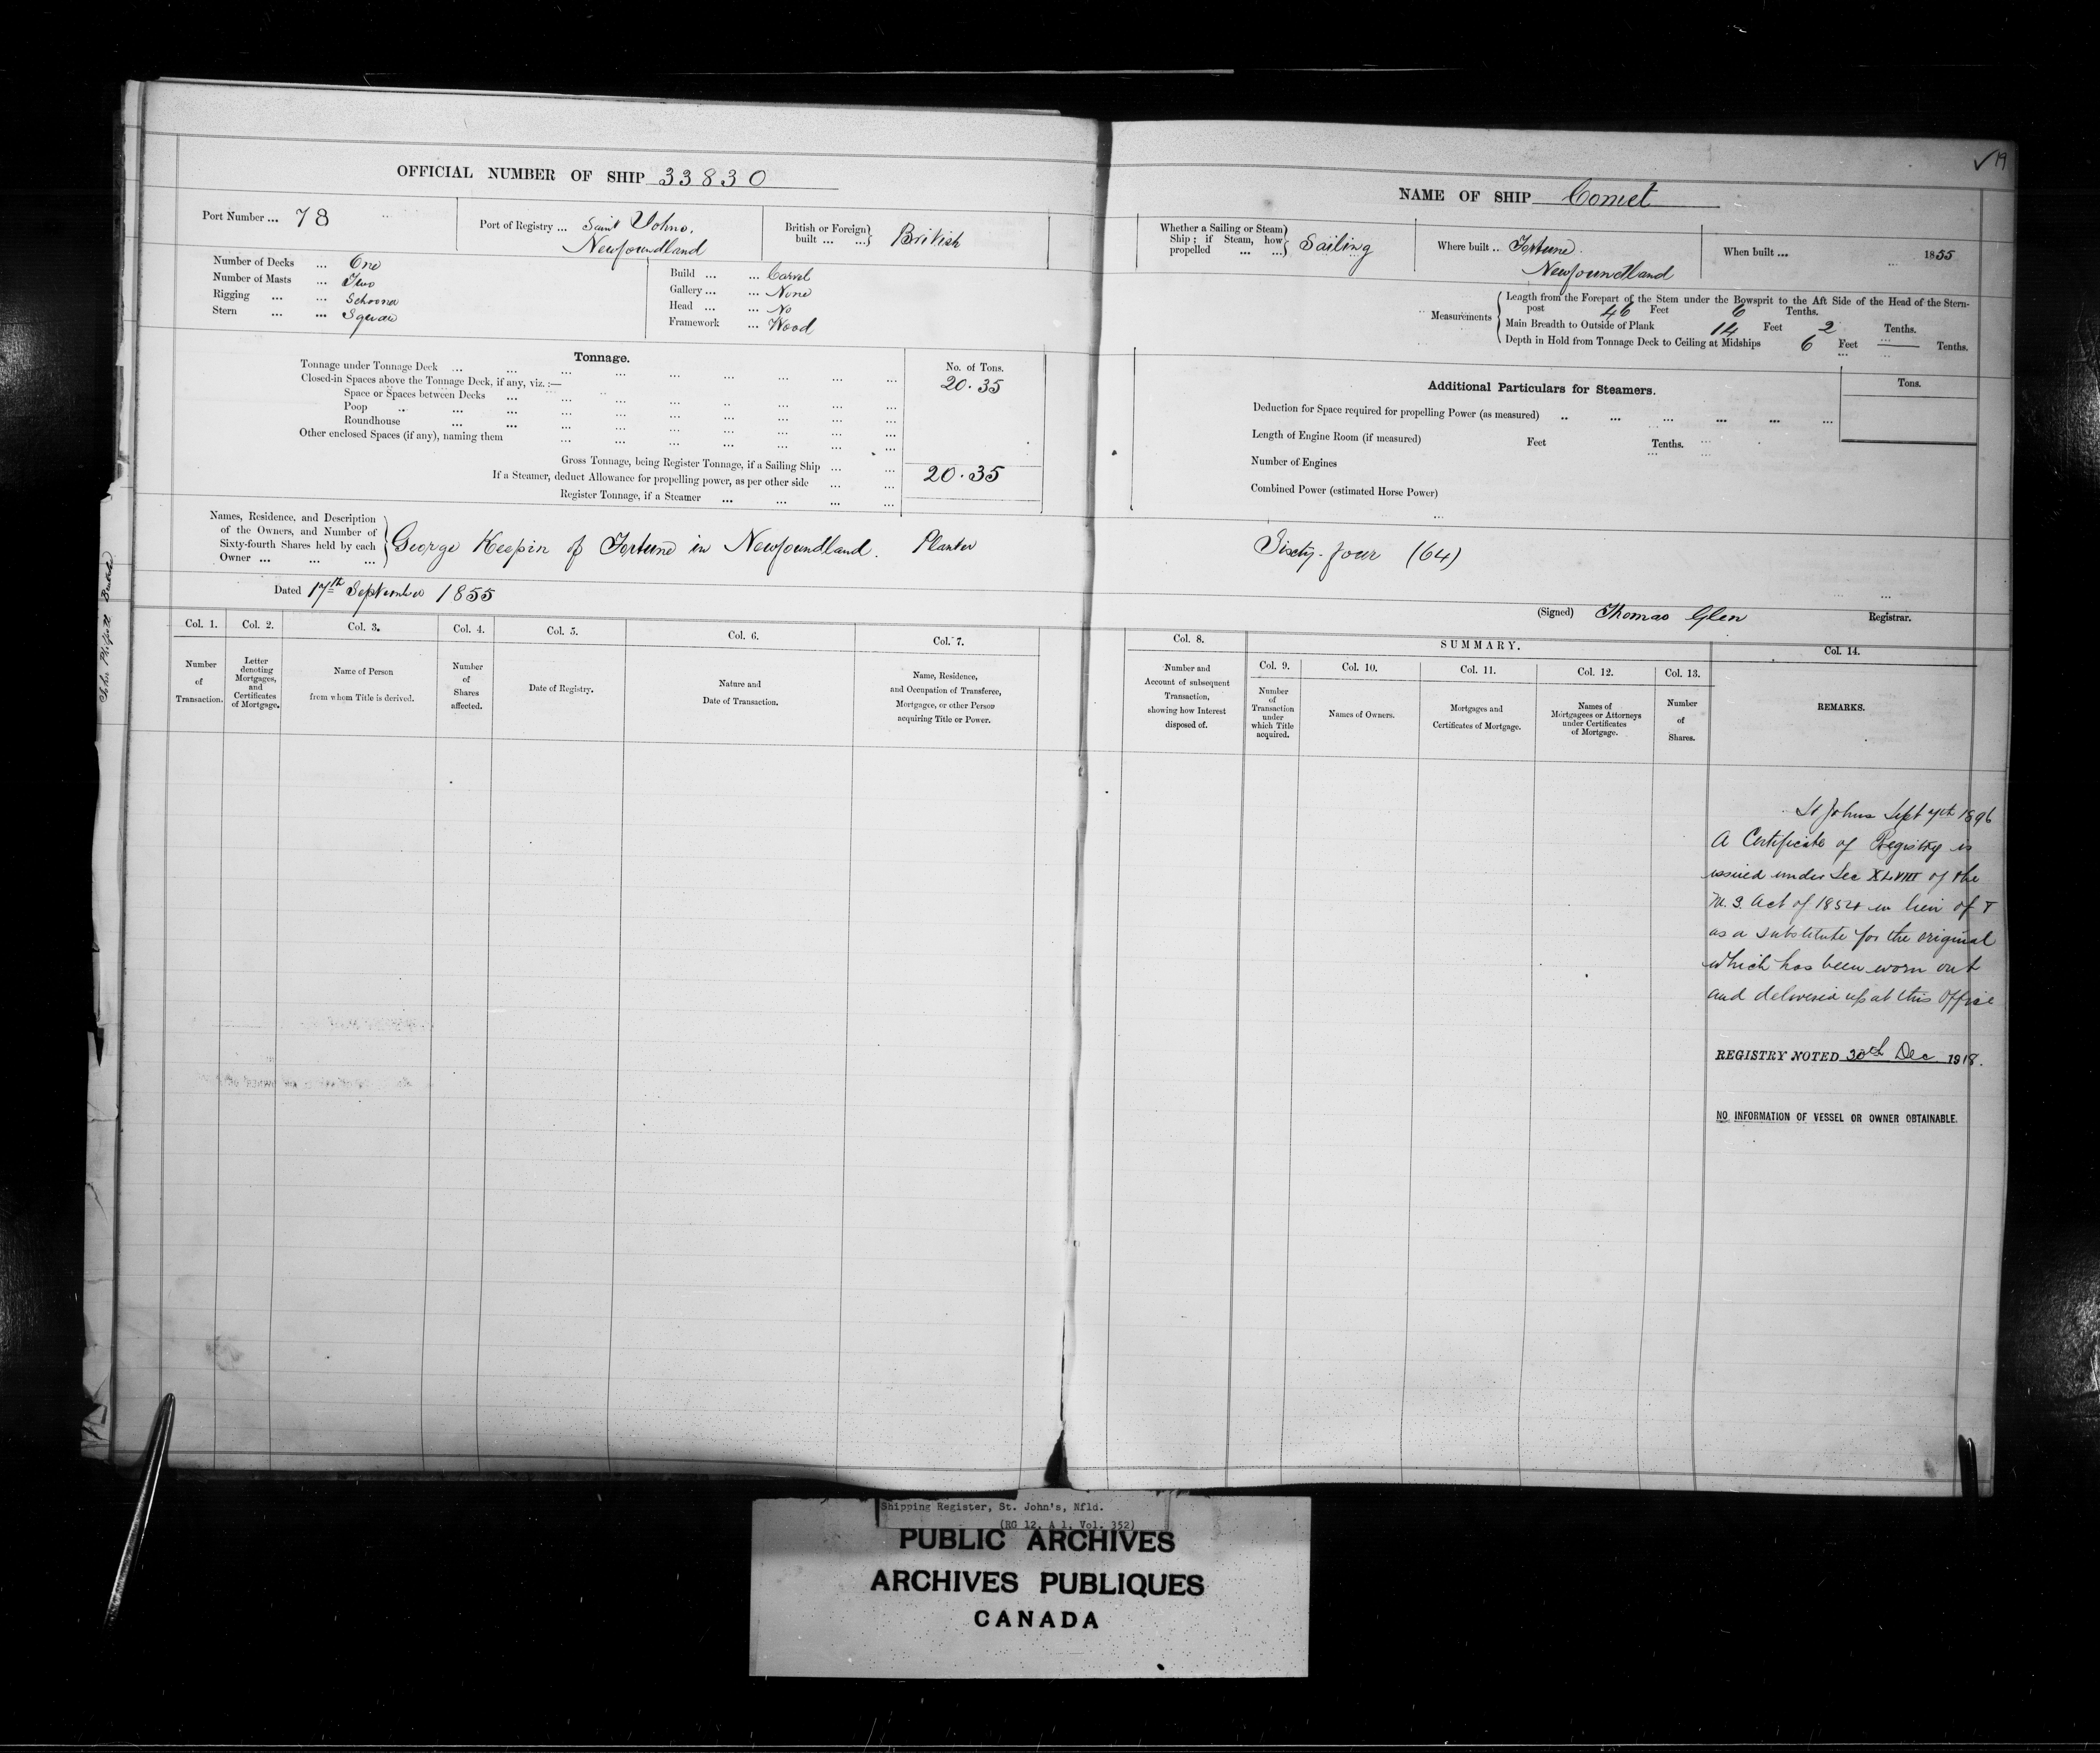 OFFICIAL NUMBER OF SHIP 33830
Port Number ... 78
Port of Registry ... Saint Johns,
Newfoundland
British or Foreign built ... ... British
Number of Decks ... One
Number of Masts ... Two
Rigging ... ... Schooner
Stern ... ... Square
Build ... ... Carvel
Gallery ... ... None
Head ... ... No
Framework ... Wood
Tonnage.
No. of Tons.
Tonnage under Tonnage Deck ... 20.35
Closed-in Spaces above the Tonnage Deck, if any, viz. :—
Space or Spaces between Decks ...
Poop ... ... ...
Roundhouse ... ...
Other enclosed Spaces (if any), naming them
Gross Tonnage, being Register Tonnage, if a Sailing Ship ... ... 20.35
If a Steamer, deduct Allowance for propelling power, as per other side ... ...
Register Tonnage, if a Steamer ... ... ... ...
Names, Residence, and Description
of the Owners, and Number of
Sixty-fourth Shares held by each
Owner ... ... ...
George Keepin of Fortune in Newfoundland. Planter
Dated 17th September 1855
Col. 1. Col. 2. Col. 3. Col. 4. Col. 5. Col. 6. Col. 7.
Number of Transaction.
Letter denoting Mortgages, and Certificates of Mortgage.
Name of Person from whom Title is derived.
Number of Shares affected.
Date of Registry.
Nature and Date of Transaction.
Name, Residence, and Occupation of Transferee, Mortgagee, or other Person acquiring Title or Power.
NAME OF SHIP Comet
19
Whether a Sailing or Steam Ship ; if Steam, how propelled ... ... Sailing
Where built .. Fortune.
Newfoundland
When built ... ... 1855
Measurements
Length from the Forepart of the Stem under the Bowsprit to the Aft Side of the Head of the Stern-
post 46 Feet 6 Tenths.
Main Breadth to Outside of Plank 14 Feet 2 Tenths.
Depth in Hold from Tonnage Deck to Ceiling at Midships 6 Feet — Tenths.
Additional Particulars for Steamers.
Tons.
Deduction for Space required for propelling Power (as measured) .. ... ... ... ... ...
Length of Engine Room (if measured) Feet Tenths.
Number of Engines
Combined Power (estimated Horse Power)
Sixty-four (64)
(Signed) Thomas Glen Registrar.
Col. 8. SUMMARY. Col. 14.
Col. 9. Col. 10. Col. 11. Col. 12. Col. 13.
Number and Account of subsequent Transaction, showing how Interest disposed of.
Number of Transaction under which Title acquired.
Names of Owners.
Mortgages and Certificates of Mortgage.
Names of Mortgagees or Attorneys under Certificates of Mortgage.
Number of Shares.
REMARKS.
St Johns Sept 1896
A Certificate of Registry is
issued under Sec XLVIII of the
M. S. Act of 1854 in lieu of &
as a substitute for the original
which has been worn out
and delivered up at this Office
REGISTRY NOTED 30th Dec 1918.
NO INFORMATION OF VESSEL OR OWNER OBTAINABLE.
Shipping Register, St. John's, Nfld.
(RG 12, A 1, Vol. 352)
PUBLIC ARCHIVES
ARCHIVES PUBLIQUES
CANADA